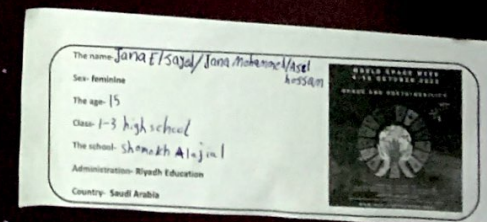 The name- Jana ElSayed/Jana Mohammed/Asel
hossam
Sex- feminine
The age- 15
Class- 1-3 high school
The school- shomokh Alajial
Administration- Riyadh Education
Country- Saudi Arabia
WORLD SPACE WEEK
4-10 OCTOBER 2022
SPACE AND SUSTAINABILITY